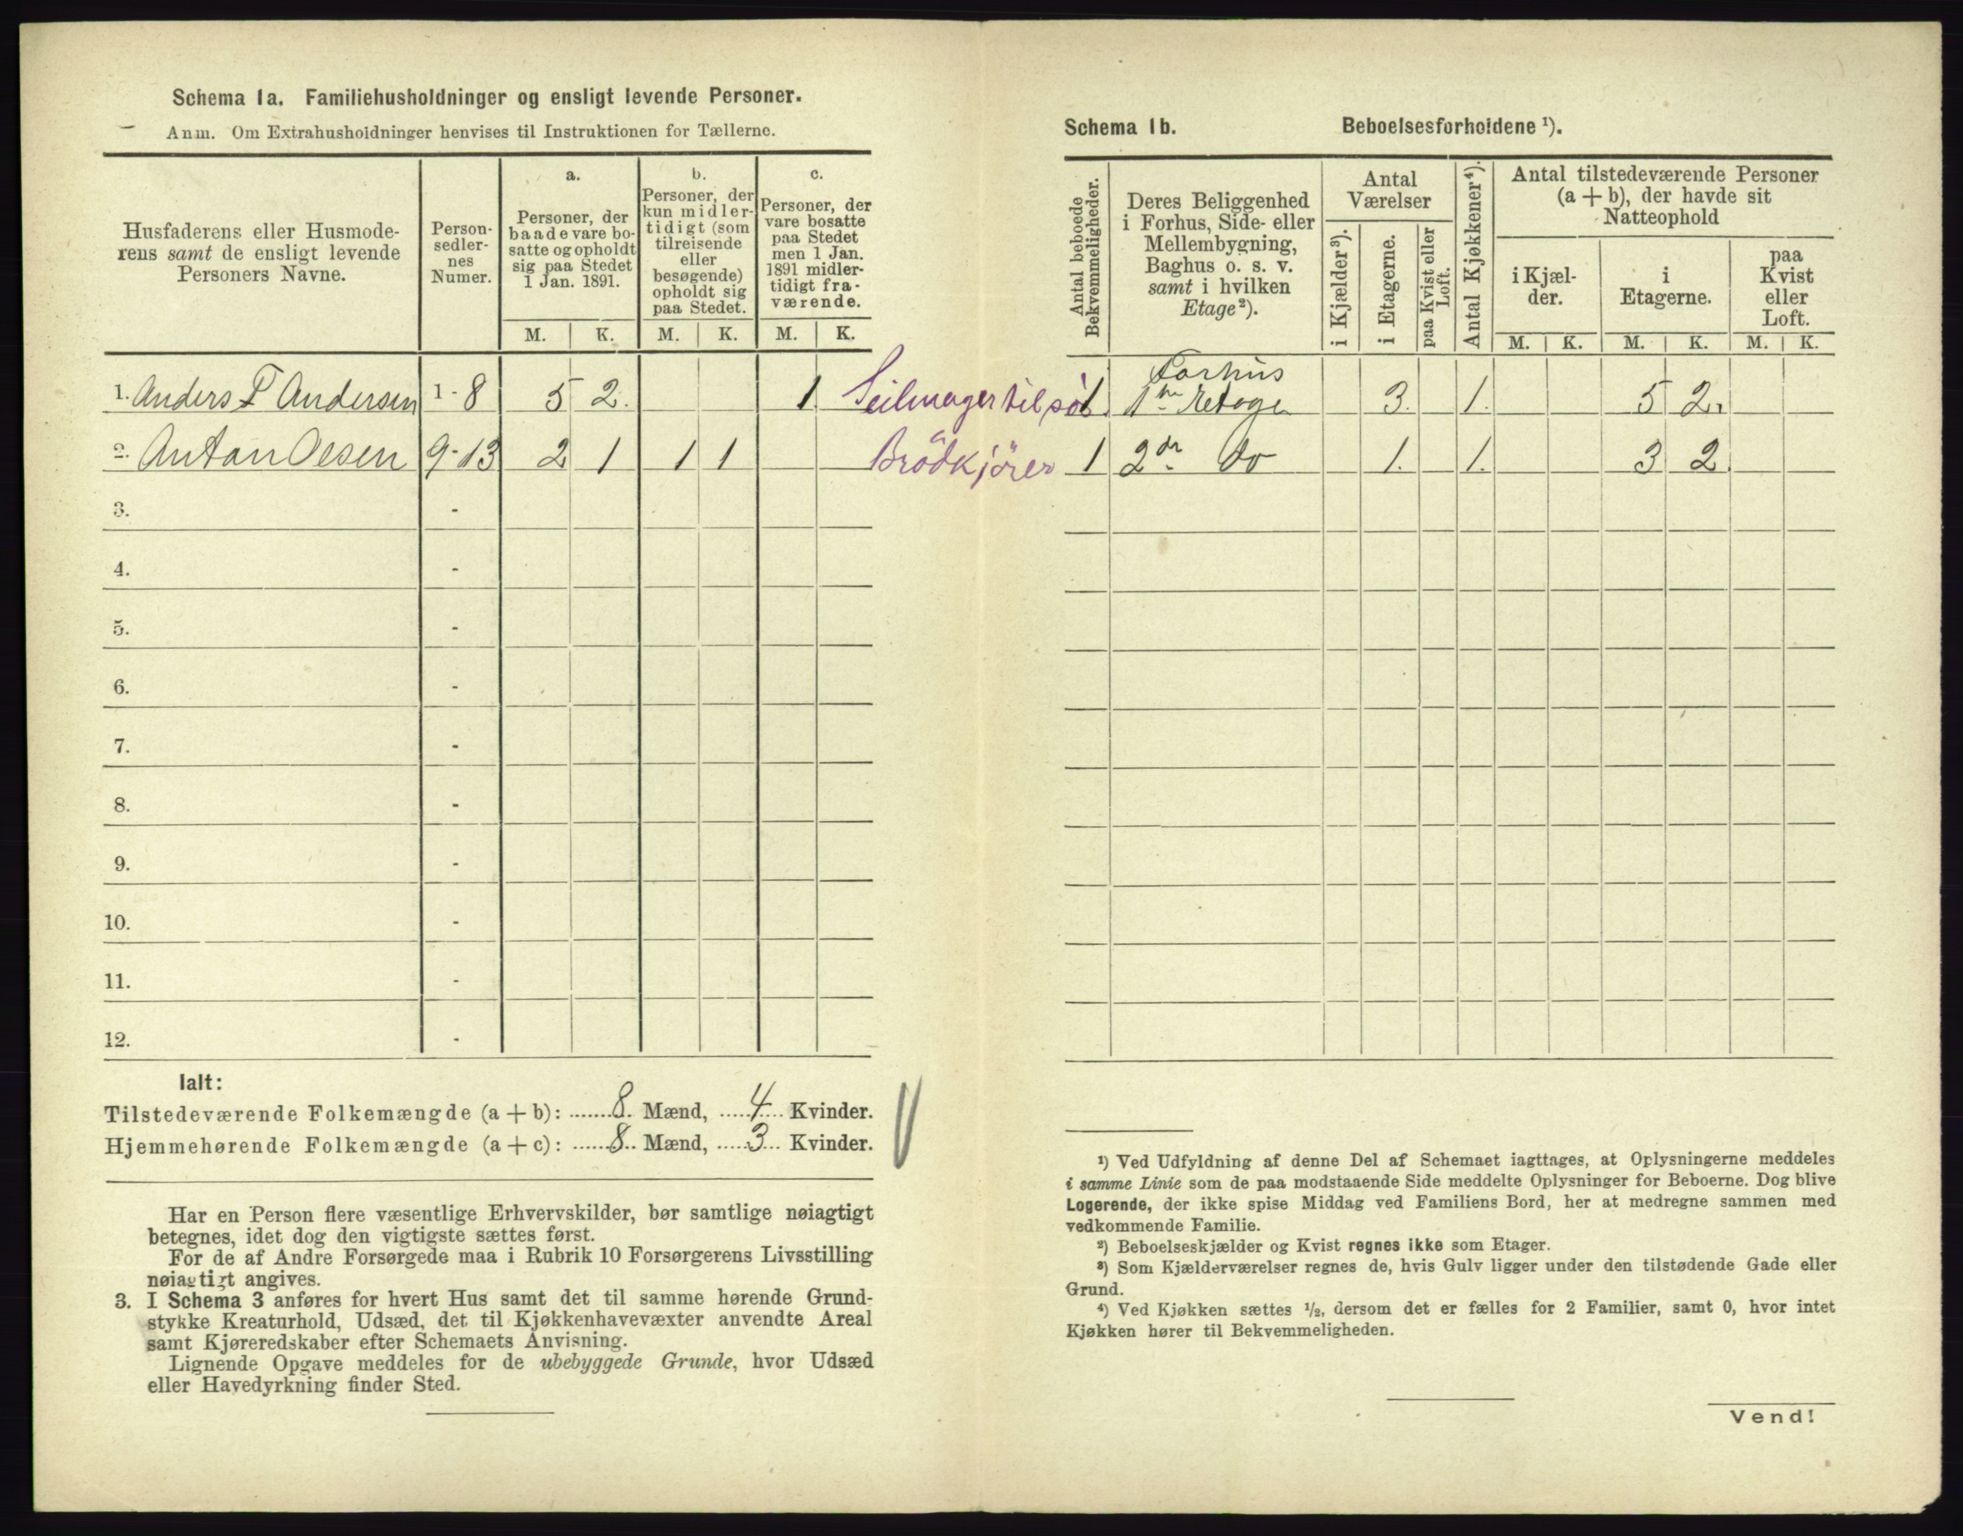 Schema 1a. Familiehusholdninger og ensligt levende Personer.
Anm. Om Extrahusholdninger henvises til Instruktionen for Tællerne.
Husfaderens eller Husmode-
rens samt de ensligt levende
Personers Navne.
Person-
sedler-
nes
Numer.
a.
Personer, der
baade vare bo-
satte og opholdt
sig paa Stedet
1 Jan. 1891.
b.
Personer, der
kun midler-
tidigt (som
tilreisende
eller
besøgende)
opholdt sig
paa Stedet.
c.
Personer, der
vare bosatte
paa Stedet
men 1 Jan.
1891 midler-
tidigt fra-
værende.
M. K. M. K. M. K.
1. Anders T Andersen 1-8 5 2. 1 Seilmager til sös
2. Anton Oesen 9-13 2 1 1 1 Brödkjörer
3. -
4. -
5. -
6. -
7. -
8. -
9. -
10. -
11. -
12. -
Ialt:
Tilstedeværende Folkemængde (a + b): 8 Mænd, 4 Kvinder.
Hjemmehørende Folkemængde (a + c): 8 Mænd, 3 Kvinder.
Har en Person flere væsentlige Erhvervskilder, bør samtlige nøiagtigt
betegnes, idet dog den vigtigste sættes først.
For de af Andre Forsørgede maa i Rubrik 10 Forsørgerens Livsstilling
nøiagtigt angives.
3. I Schema 3 anføres for hvert Hus samt det til samme hørende Grund-
stykke Kreaturhold, Udsæd, det til Kjøkkenhavevæxter anvendte Areal
samt Kjøreredskaber efter Schemaets Anvisning.
Lignende Opgave meddeles for de ubebyggede Grunde, hvor Udsæd
eller Havedyrkning finder Sted.
Schema 1b. Beboelsesforholdene ¹).
Antal beboede
Bekvemmeligheder.
Deres Beliggenhed
i Forhus, Side- eller
Mellembygning,
Baghus o. s. v.
samt i hvilken
Etage²).
Antal
Værelser
i Kjælder³).
i Etagerne.
paa Kvist eller
Loft.
Antal Kjøkkener⁴).
Antal tilstedeværende Personer
(a + b), der havde sit
Natteophold
i Kjæl-
der.
i
Etagerne.
paa
Kvist
eller
Loft.
M. K. M. K. M. K.
Forhus
1 1ste Etage 3. 1. 5 2.
1 2den do 1. 1. 3 2
¹) Ved Udfyldning af denne Del af Schemaet iagttages, at Oplysningerne meddeles
i samme Linie som de paa modstaaende Side meddelte Oplysninger for Beboerne. Dog blive
Logerende, der ikke spise Middag ved Familiens Bord, her at medregne sammen med
vedkommende Familie.
²) Beboelseskjælder og Kvist regnes ikke som Etager.
³) Som Kjælderværelser regnes de, hvis Gulv ligger under den tilstødende Gade eller
Grund.
⁴) Ved Kjøkken sættes ½, dersom det er fælles for 2 Familier, samt 0, hvor intet
Kjøkken hører til Bekvemmeligheden.
Vend!